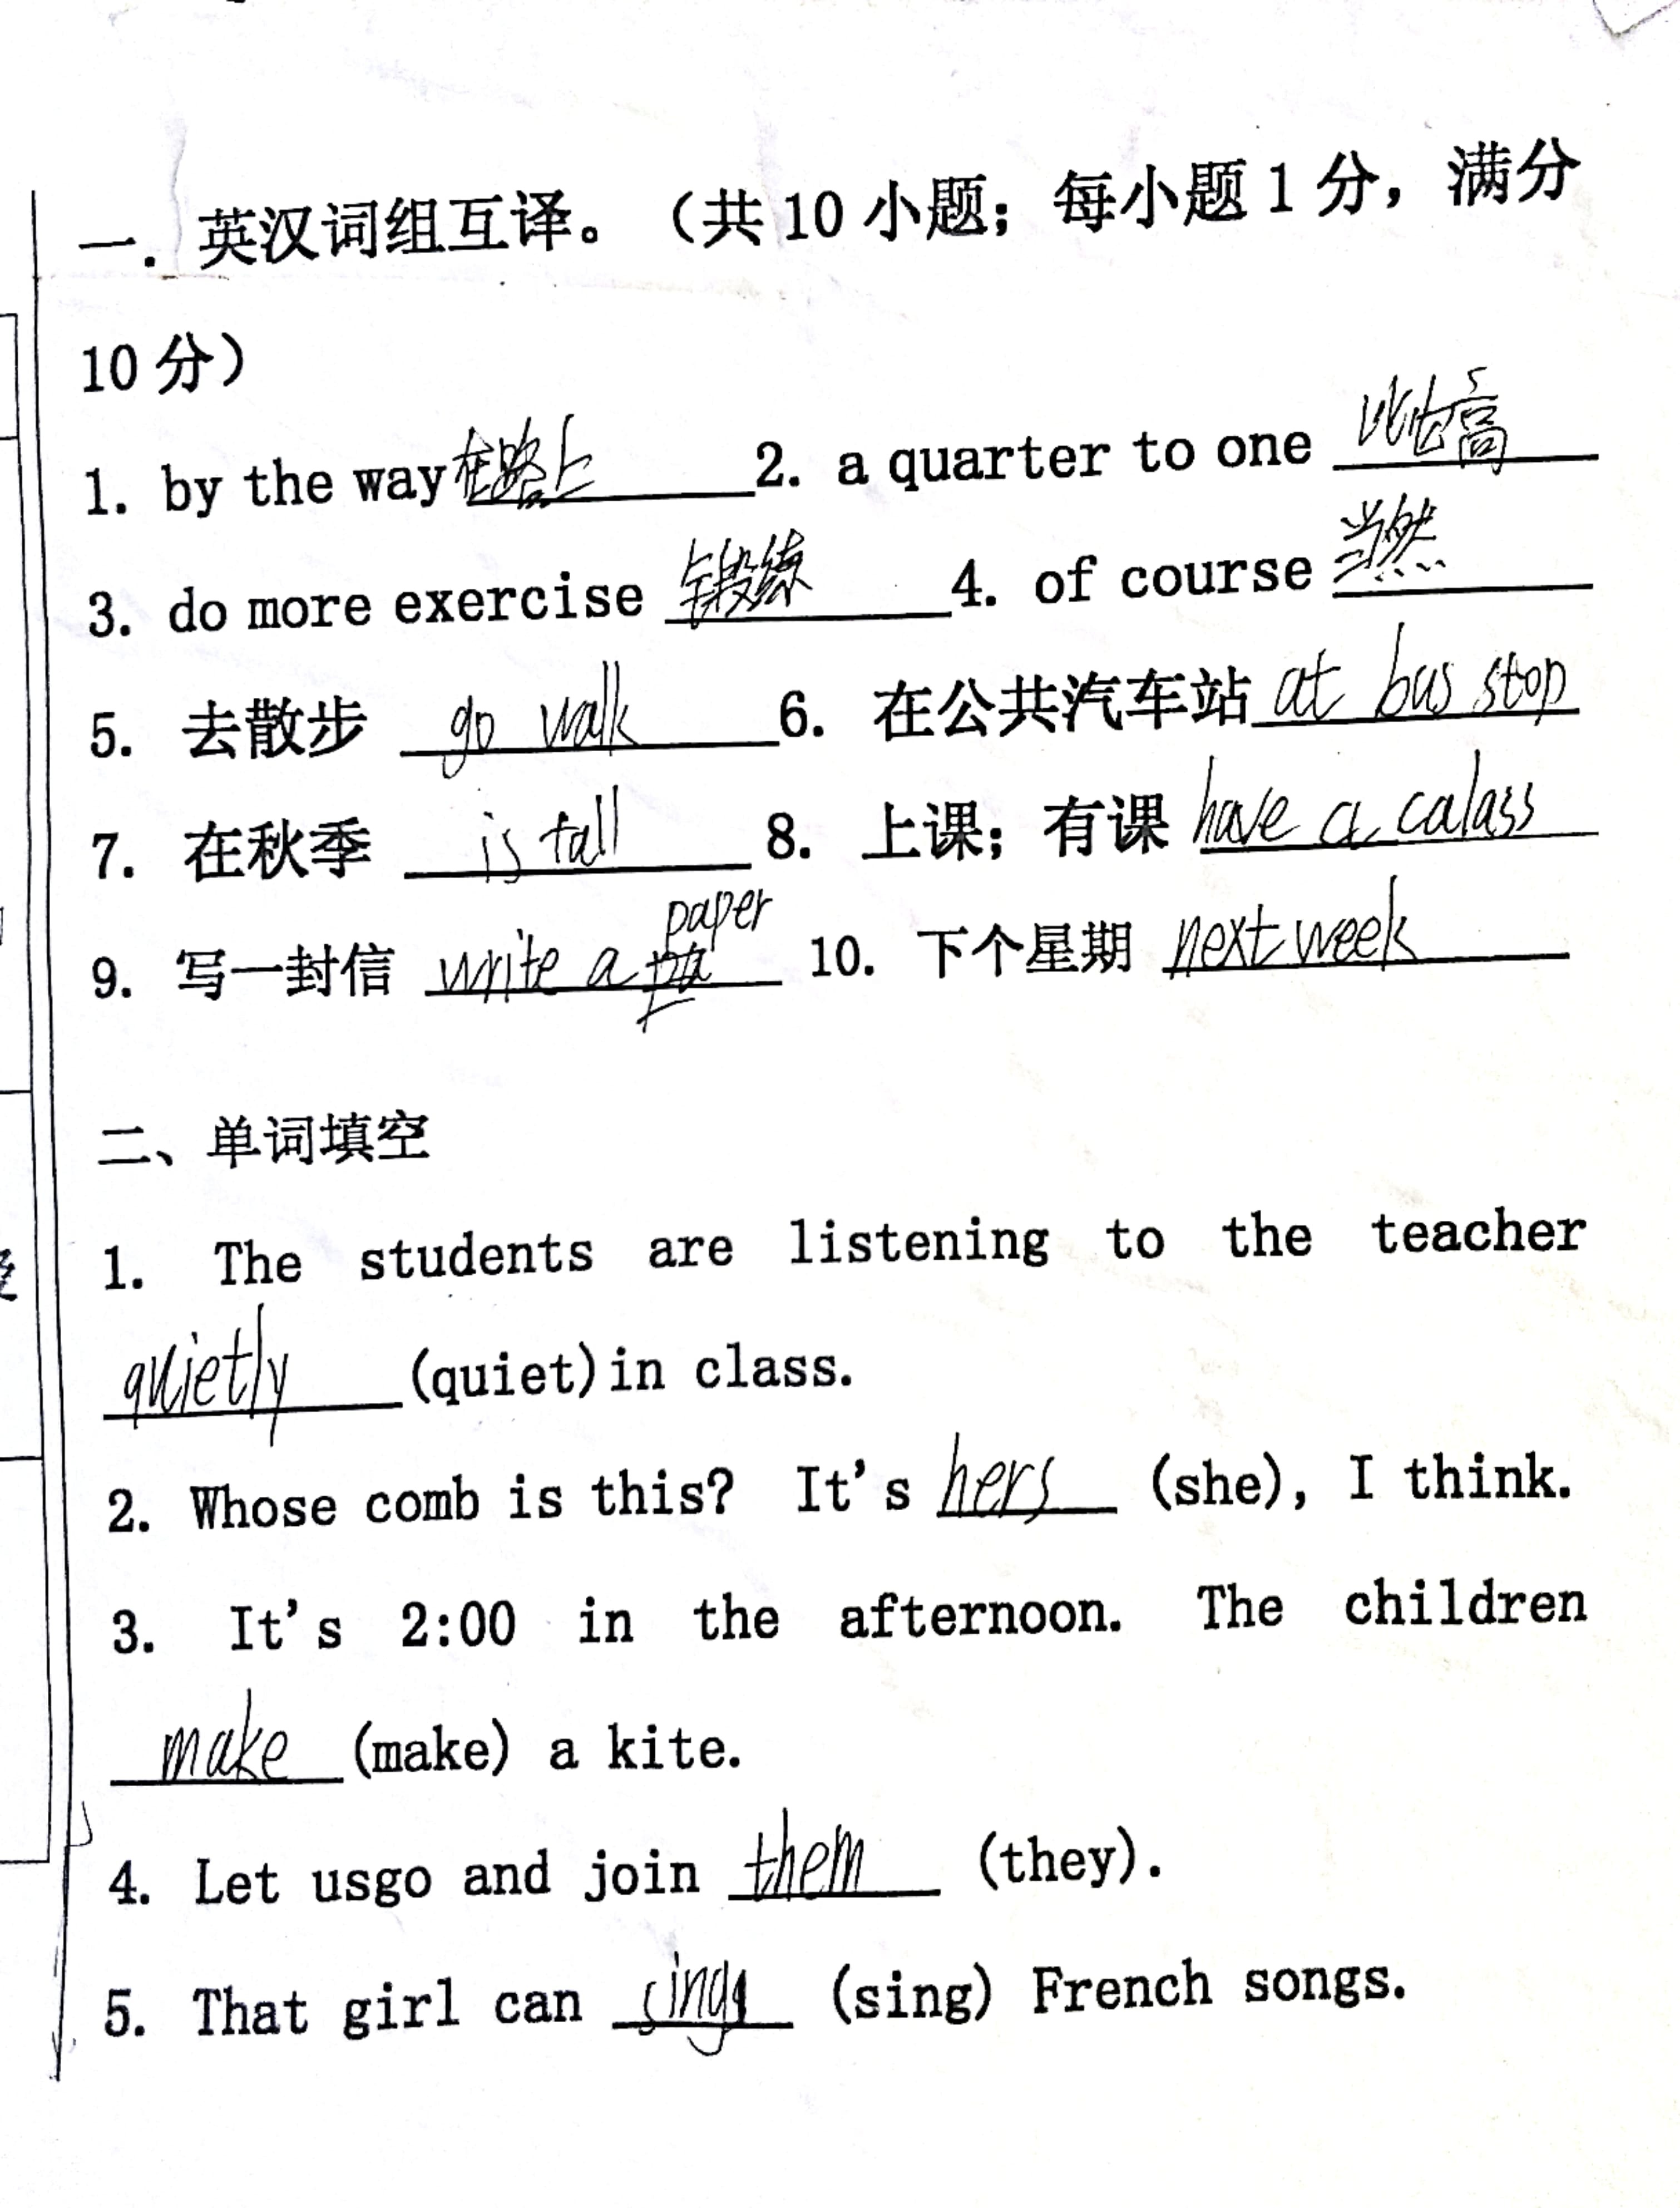 一. 英汉词组互译。（共 10 小题；每小题 1 分，满分
10 分）
1. by the way 在路上 2. a quarter to one 比它高
3. do more exercise 锻练 4. of course 当然
5. 去散步 go walk 6. 在公共汽车站 at bus stop
7. 在秋季 is fall 8. 上课；有课 have a calass
9. 写一封信 write a paper 10. 下个星期 next week
二、单词填空
1. The students are listening to the teacher
quietly (quiet) in class.
2. Whose comb is this? It's hers (she), I think.
3. It's 2:00 in the afternoon. The children
make (make) a kite.
4. Let usgo and join them (they).
5. That girl can sing (sing) French songs.